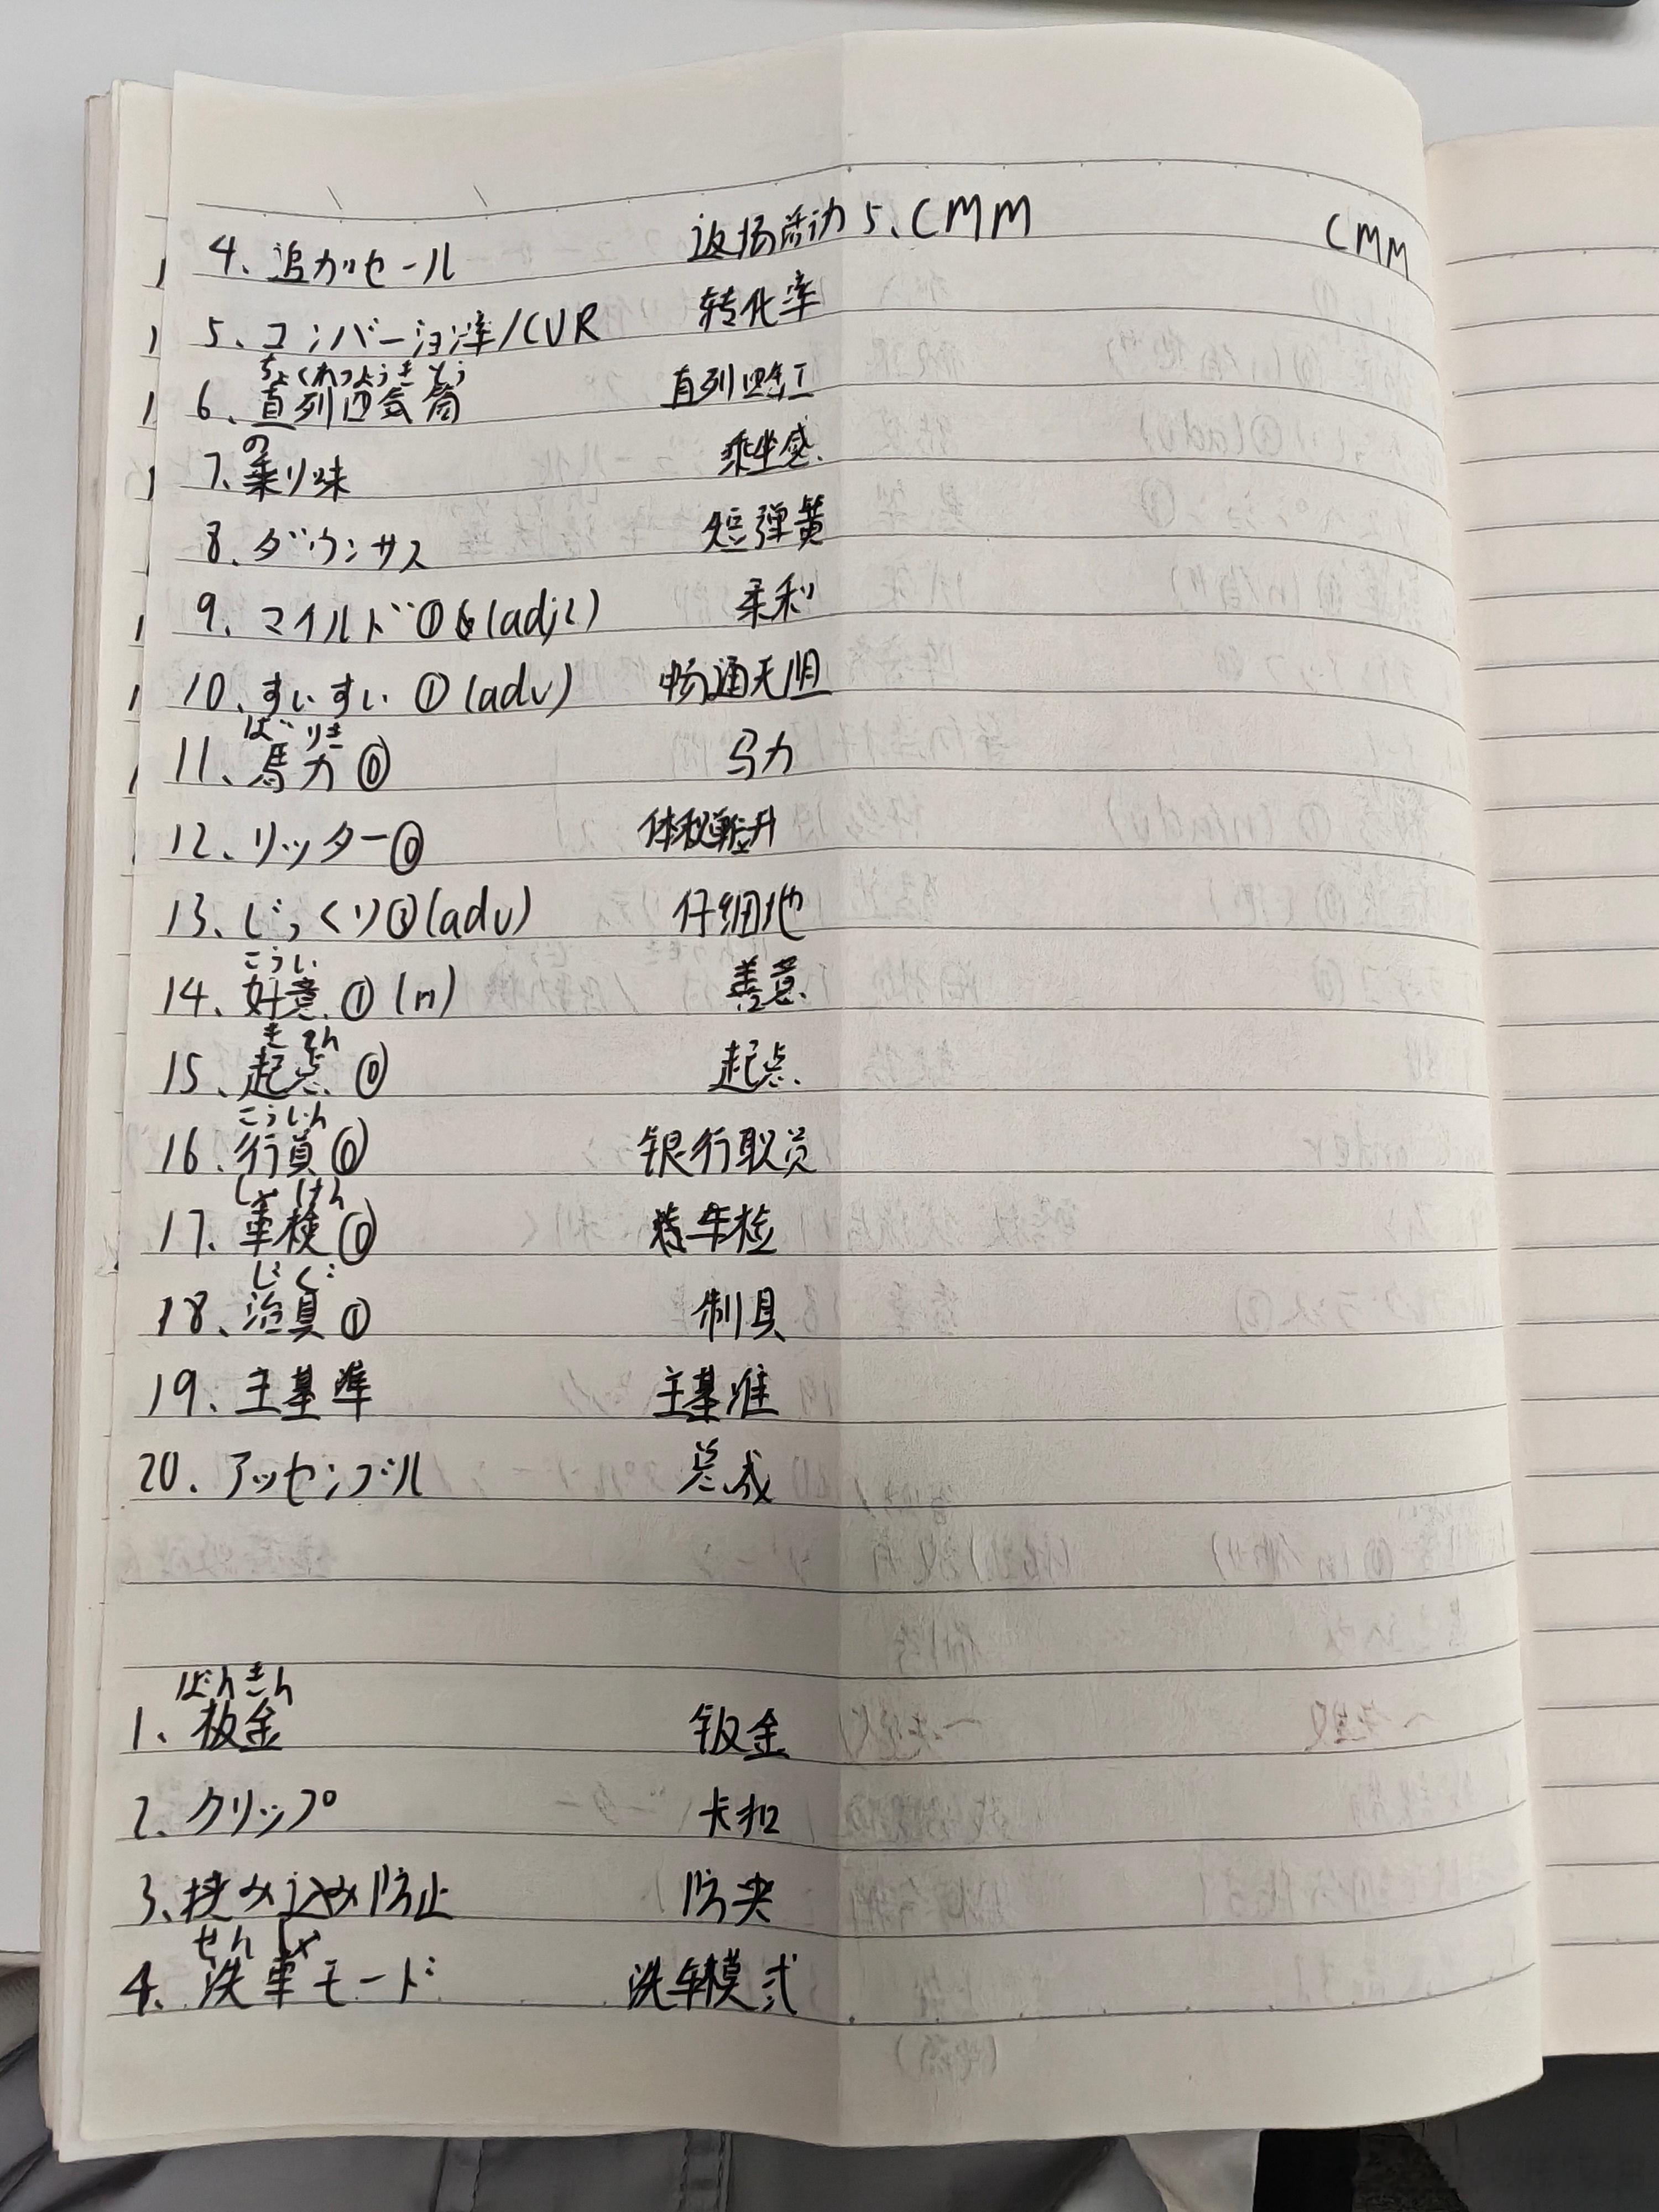 4、追加セール 返场活动
5、コンバーション率/CVR 转化率
ちょくれつようきとう
6、直列四気筒 直列四缸
の
7、乗り味 乘坐感
8、ダウンサス 短弹簧
9、マイルド① (adj2) 柔和
10、すいすい ① (adv) 畅通无阻
ばりき
11、馬力⓪ 马力
12、リッター⓪ 体积单位升
13、じっくり③(adv) 仔细地
こうい
14、好意 ① (n) 善意
きてん
15、起点 ⓪ 起点
こういん
16、行員⓪ 银行职员
しゃけん
17、車検⓪ 车检
じぐ
18、治具① 制具
19、主基準 主基准
20、アッセンブル 总成
ばんきん
1、板金 钣金
2、クリップ 卡扣
3、挟み込み防止 防夹
せんしゃ
4、洗車モード 洗车模式
5、CMM CMM